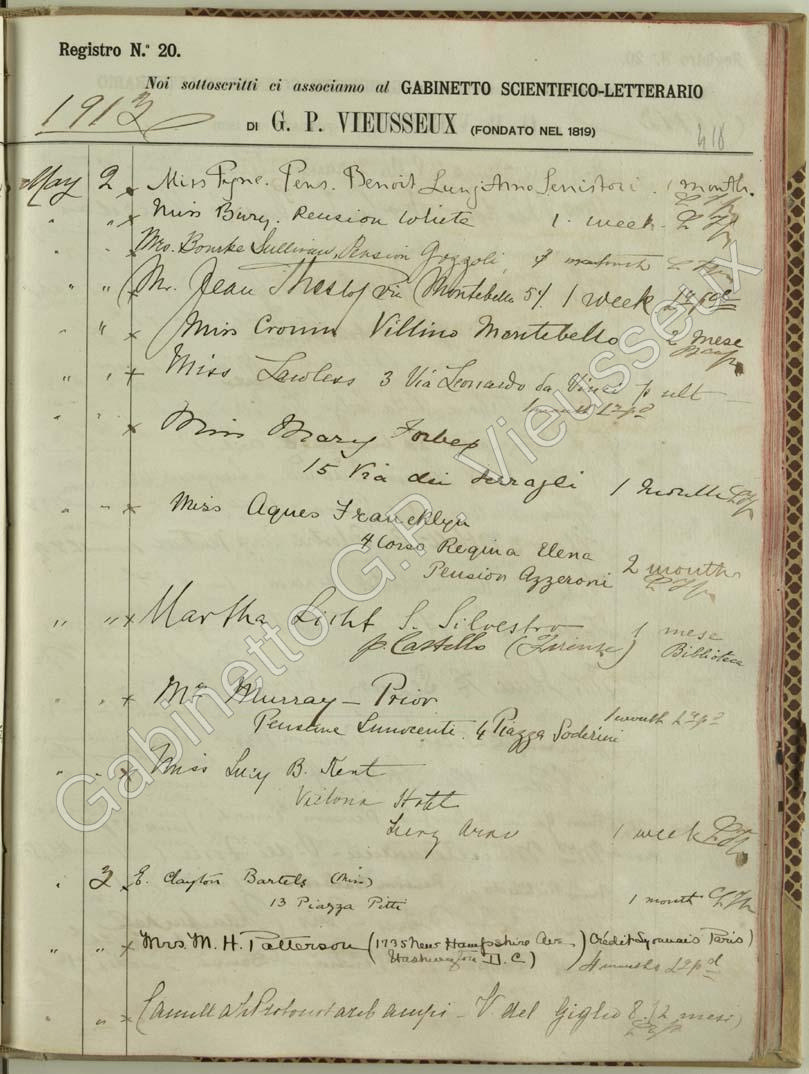 Registro N.º 20.
Noi sottoscritti ci associamo al GABINETTO SCIENTIFICO-LETTERARIO
1913
DI G. P. VIEUSSEUX (FONDATO NEL 1819)
418
May 2 x Miss Pyne. Pens. Benoit Lung'Arno Serristori. 1 month.
" " x Miss Bury. Pension White 1 week.
" " x Mrs. Bourke Sullivan, Pension Gozzoli,
" " x Mr. Jean Via Montebello 54 1 week
" " x Miss Villino Montebello 2 mese
" " x Miss Lawless 3 Via Leonardo da Vinci p ult
1 month
" " x Miss Mary Forbes
15 Via dei Serragli 1 month
" " x Miss Agnes Francklyn
4 Corso Regina Elena 2 months
Pension Azzeroni
" " x Martha Licht S. Silvestro 1 mese
p. Castello (Firenze) Biblioteca
" " x Mrs Murray-Prior
1 month
Pensione Innocenti. 4 Piazza Soderini
" " x Miss Lucy B. Kent
Victoria Hotel
Lung Arno 1 week
" 3 x E. Clayton Bartels (Miss)
13 Piazza Pitti 1 month
" " x Mrs. M. H. Patterson (1735 New Hampshire Ave Crédit Lyonnais Paris)
Washington D.C) 4 months
" " x V. del Giglio 8. (2 mesi)
Gabinetto G.P. Vieusseux